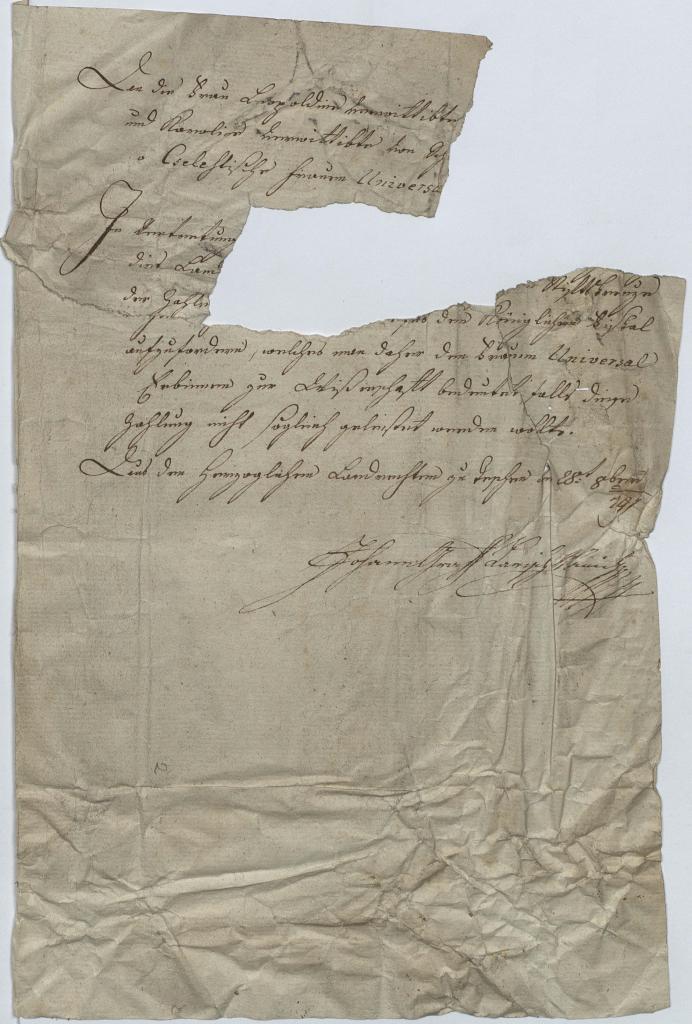 An die Frau Leopoldine verwittibte
und Karolina verwittibte von
Cselestische Frauen Universa
In Vertretung
die Land
der Zahlu
den Königlichen Fiskal
aufzufordern, welches man daher den Frauen Universal
Erbinnen zur Wißenschaft bedeutet, falls diese
Zahlung nicht sogleich geleistet werden wollte.
Aus den Herzoglichen Landrechten zu Teschen den 28t 8bris
791
Johann Graf Larisch